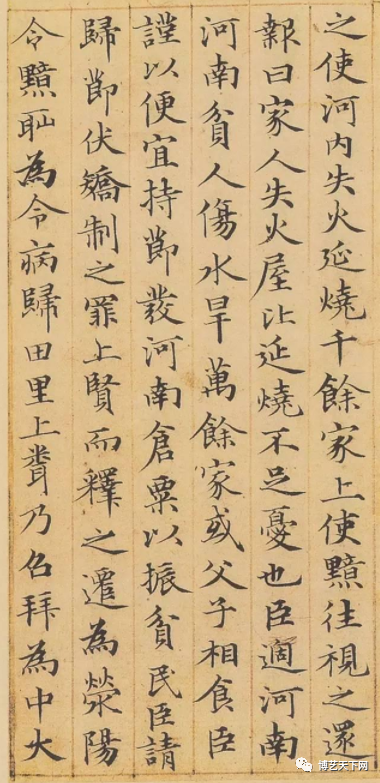 之使河内失火延燒千餘家上使黯往視之還
報曰家人失火屋比延燒不足憂也臣適河南
河南貧人傷水旱萬餘家或父子相食臣
謹以便宜持節發河南倉粟以振貧民臣請
歸節伏矯制之罪上賢而釋之遷為滎陽
令黯耻為令病歸田里上聞乃召拜為中大
博艺天下网